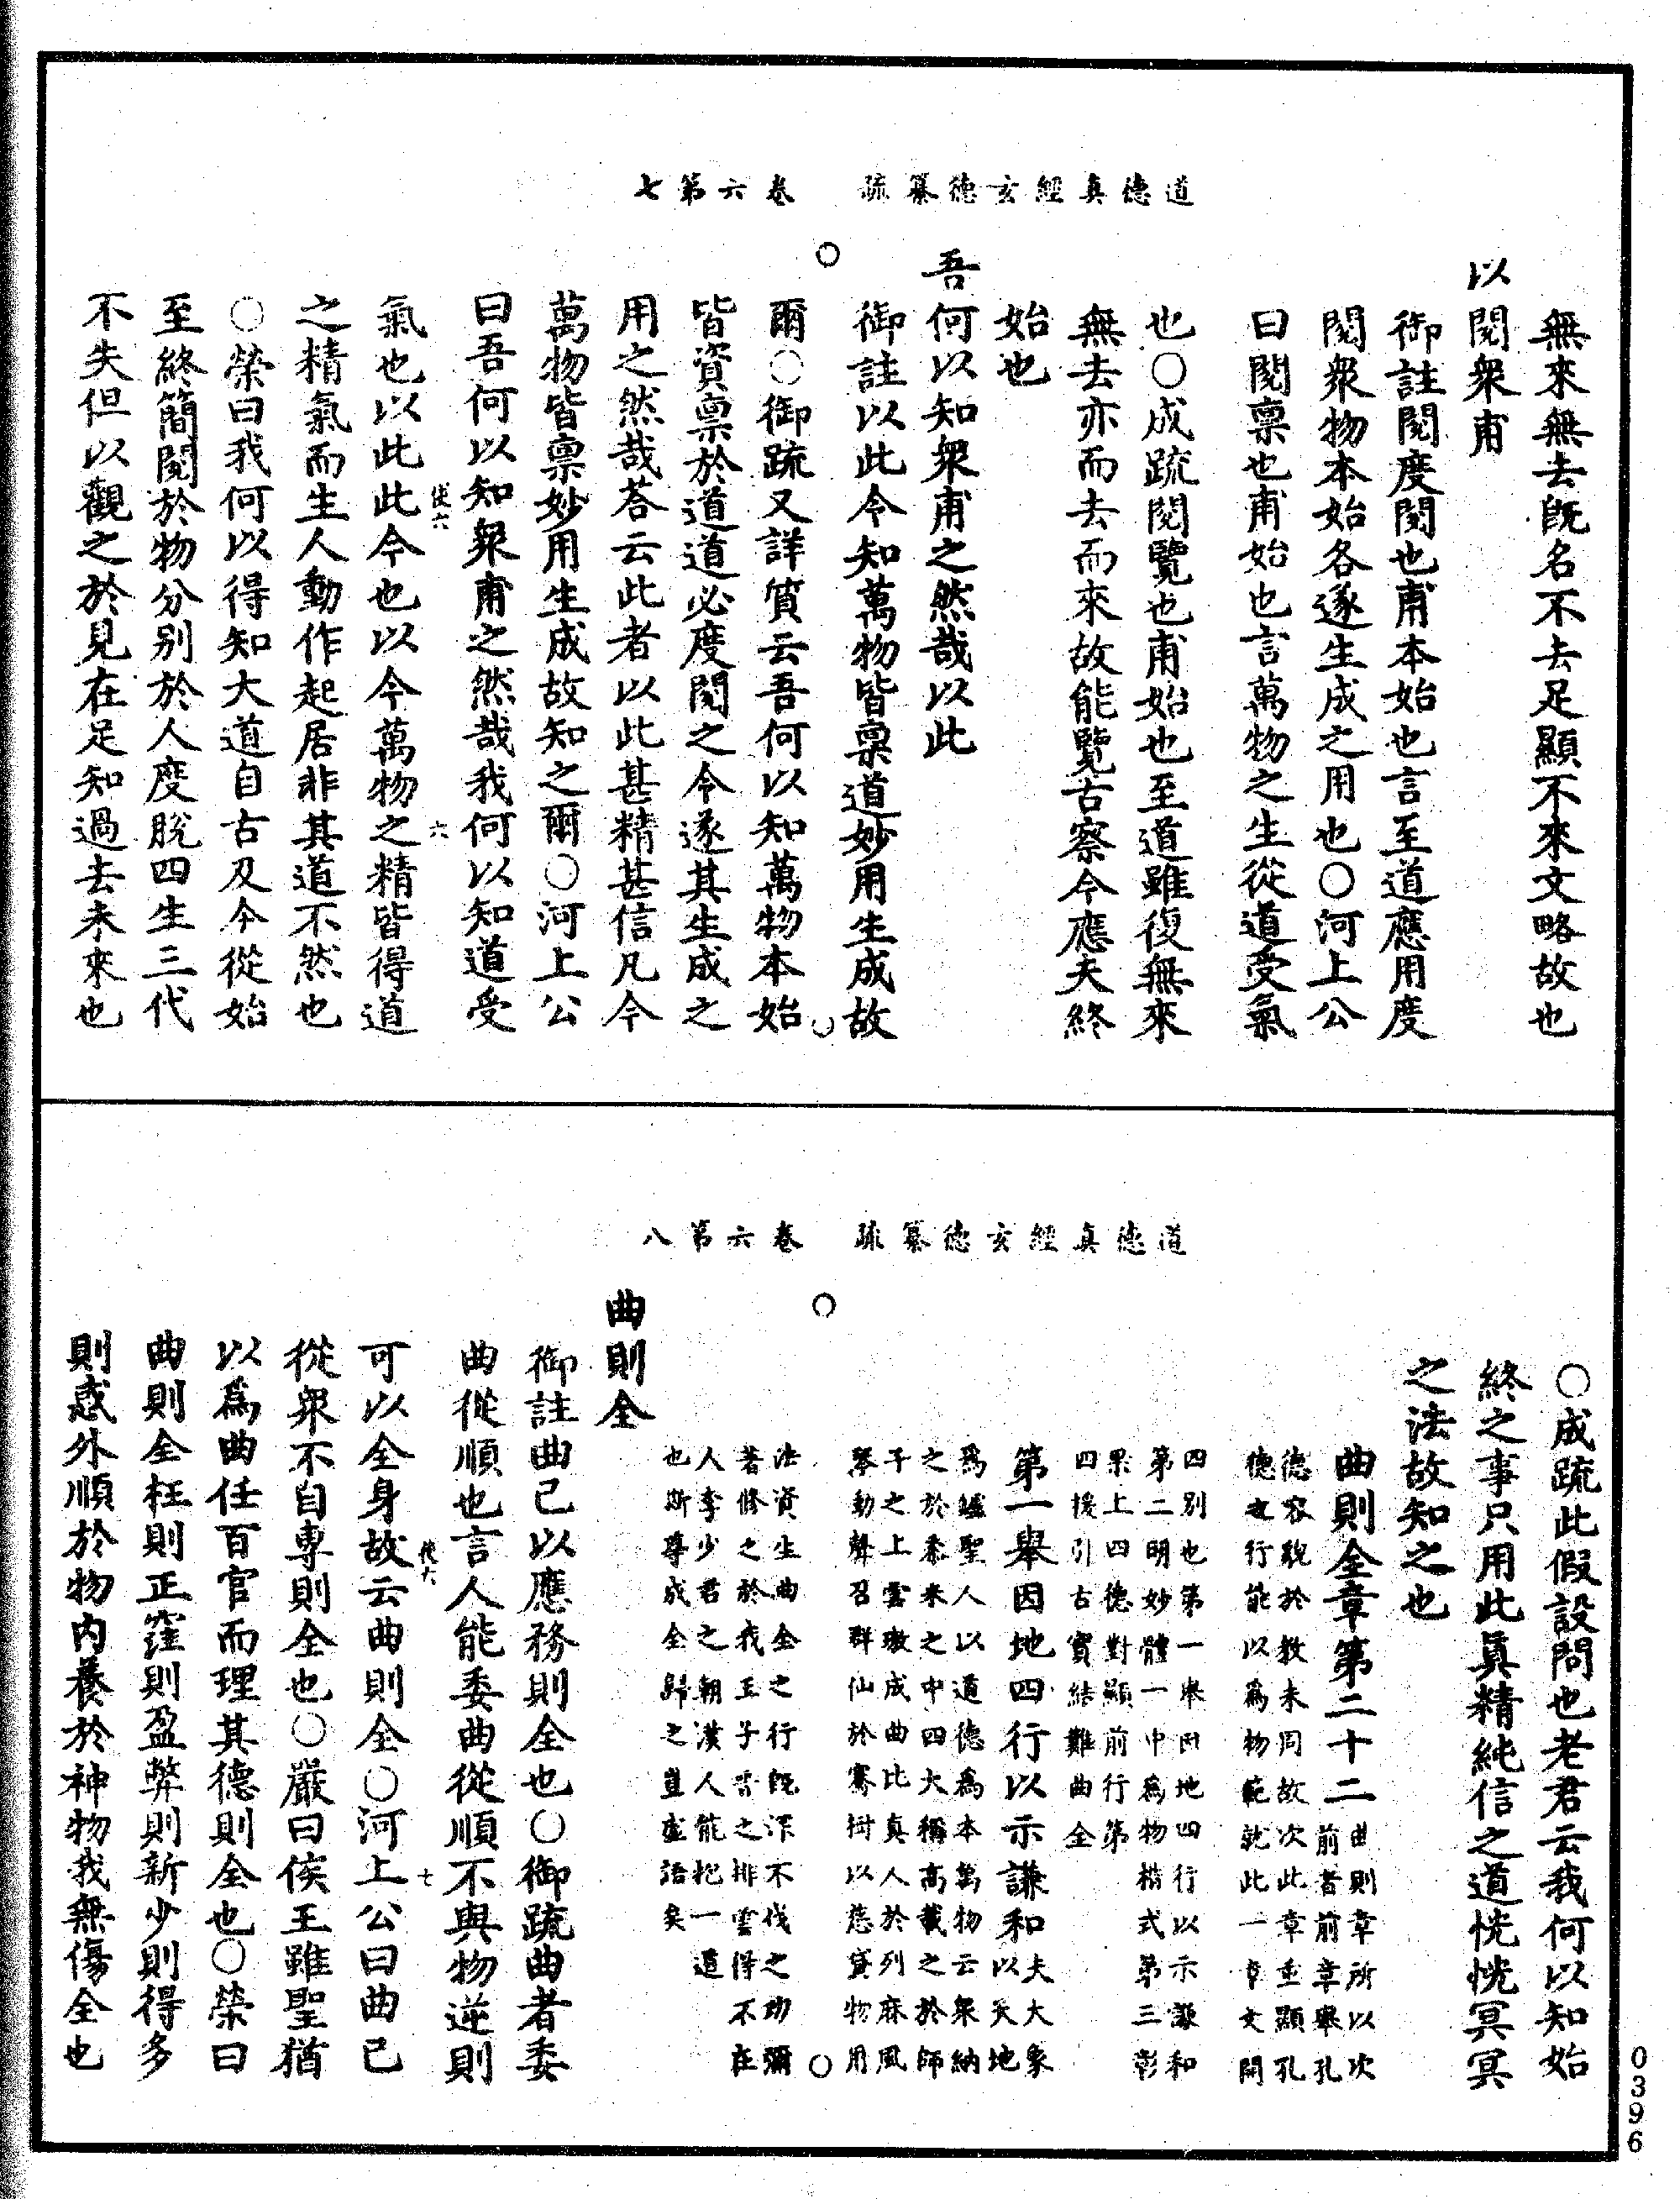 道德真經玄德纂疏　卷六第七
無來無去旣名不去足顯不來文略故也
以閱衆甫
御註閱度閱也甫本始也言至道應用度
閱衆物本始各遂生成之用也○河上公
曰閱稟也甫始也言萬物之生從道受氣
也○成疏閱覽也甫始也至道雖復無來
無去亦而去而來故能覽古察今應夫終
始也
吾何以知衆甫之然哉以此
御註以此今知萬物皆稟道妙用生成故
爾○御疏又詳質云吾何以知萬物本始
皆資稟於道道必度閱之令遂其生成之
用之然哉荅云此者以此甚精甚信凡今
萬物皆稟妙用生成故知之爾○河上公
曰吾何以知衆甫之然哉我何以知道受
氣也以此此今也以今萬物之精皆得道
之精氣而生人動作起居非其道不然也
○榮曰我何以得知大道自古及今從始
至終簡閱於物分別於人度脫四生三代
不失但以觀之於見在足知過去未來也
道德真經玄德纂疏　卷六第八
○成疏此假設問也老君云我何以知始
終之事只用此眞精純信之道恍恍冥冥
之法故知之也
曲則全章第二十二
曲則章所以次
前者前章舉孔
德容貌於敎未同故次此章重顯孔
德之行能以爲物範就此一章文開
四別也第一舉因地四行以示謙和
第二明妙體一中爲物楷式第三彰
果上四德對顯前行第
四援引古實結難曲全
第一舉因地四行以示謙和
夫大象
以天地
爲爐聖人以道德爲本萬物云衆納
之於黍米之中四大稱高載之於師
子之上雲璈成曲比真人於列麻風
琴動聲召群仙於騫樹以慈貸物用
法資生曲全之行旣深不伐之功彌
著修之於我王子晋之排雲得不在
人李少君之朝漢人能抱一道
也斯尊成全歸之豈虛語矣
曲則全
御註曲已以應務則全也○御疏曲者委
曲從順也言人能委曲從順不與物逆則
可以全身故云曲則全○河上公曰曲己
從衆不自專則全也○嚴曰侯王雖聖猶
以爲曲任百官而理其德則全也○榮曰
曲則全枉則正窪則盈弊則新少則得多
則惑外順於物內養於神物我無傷全也
0396